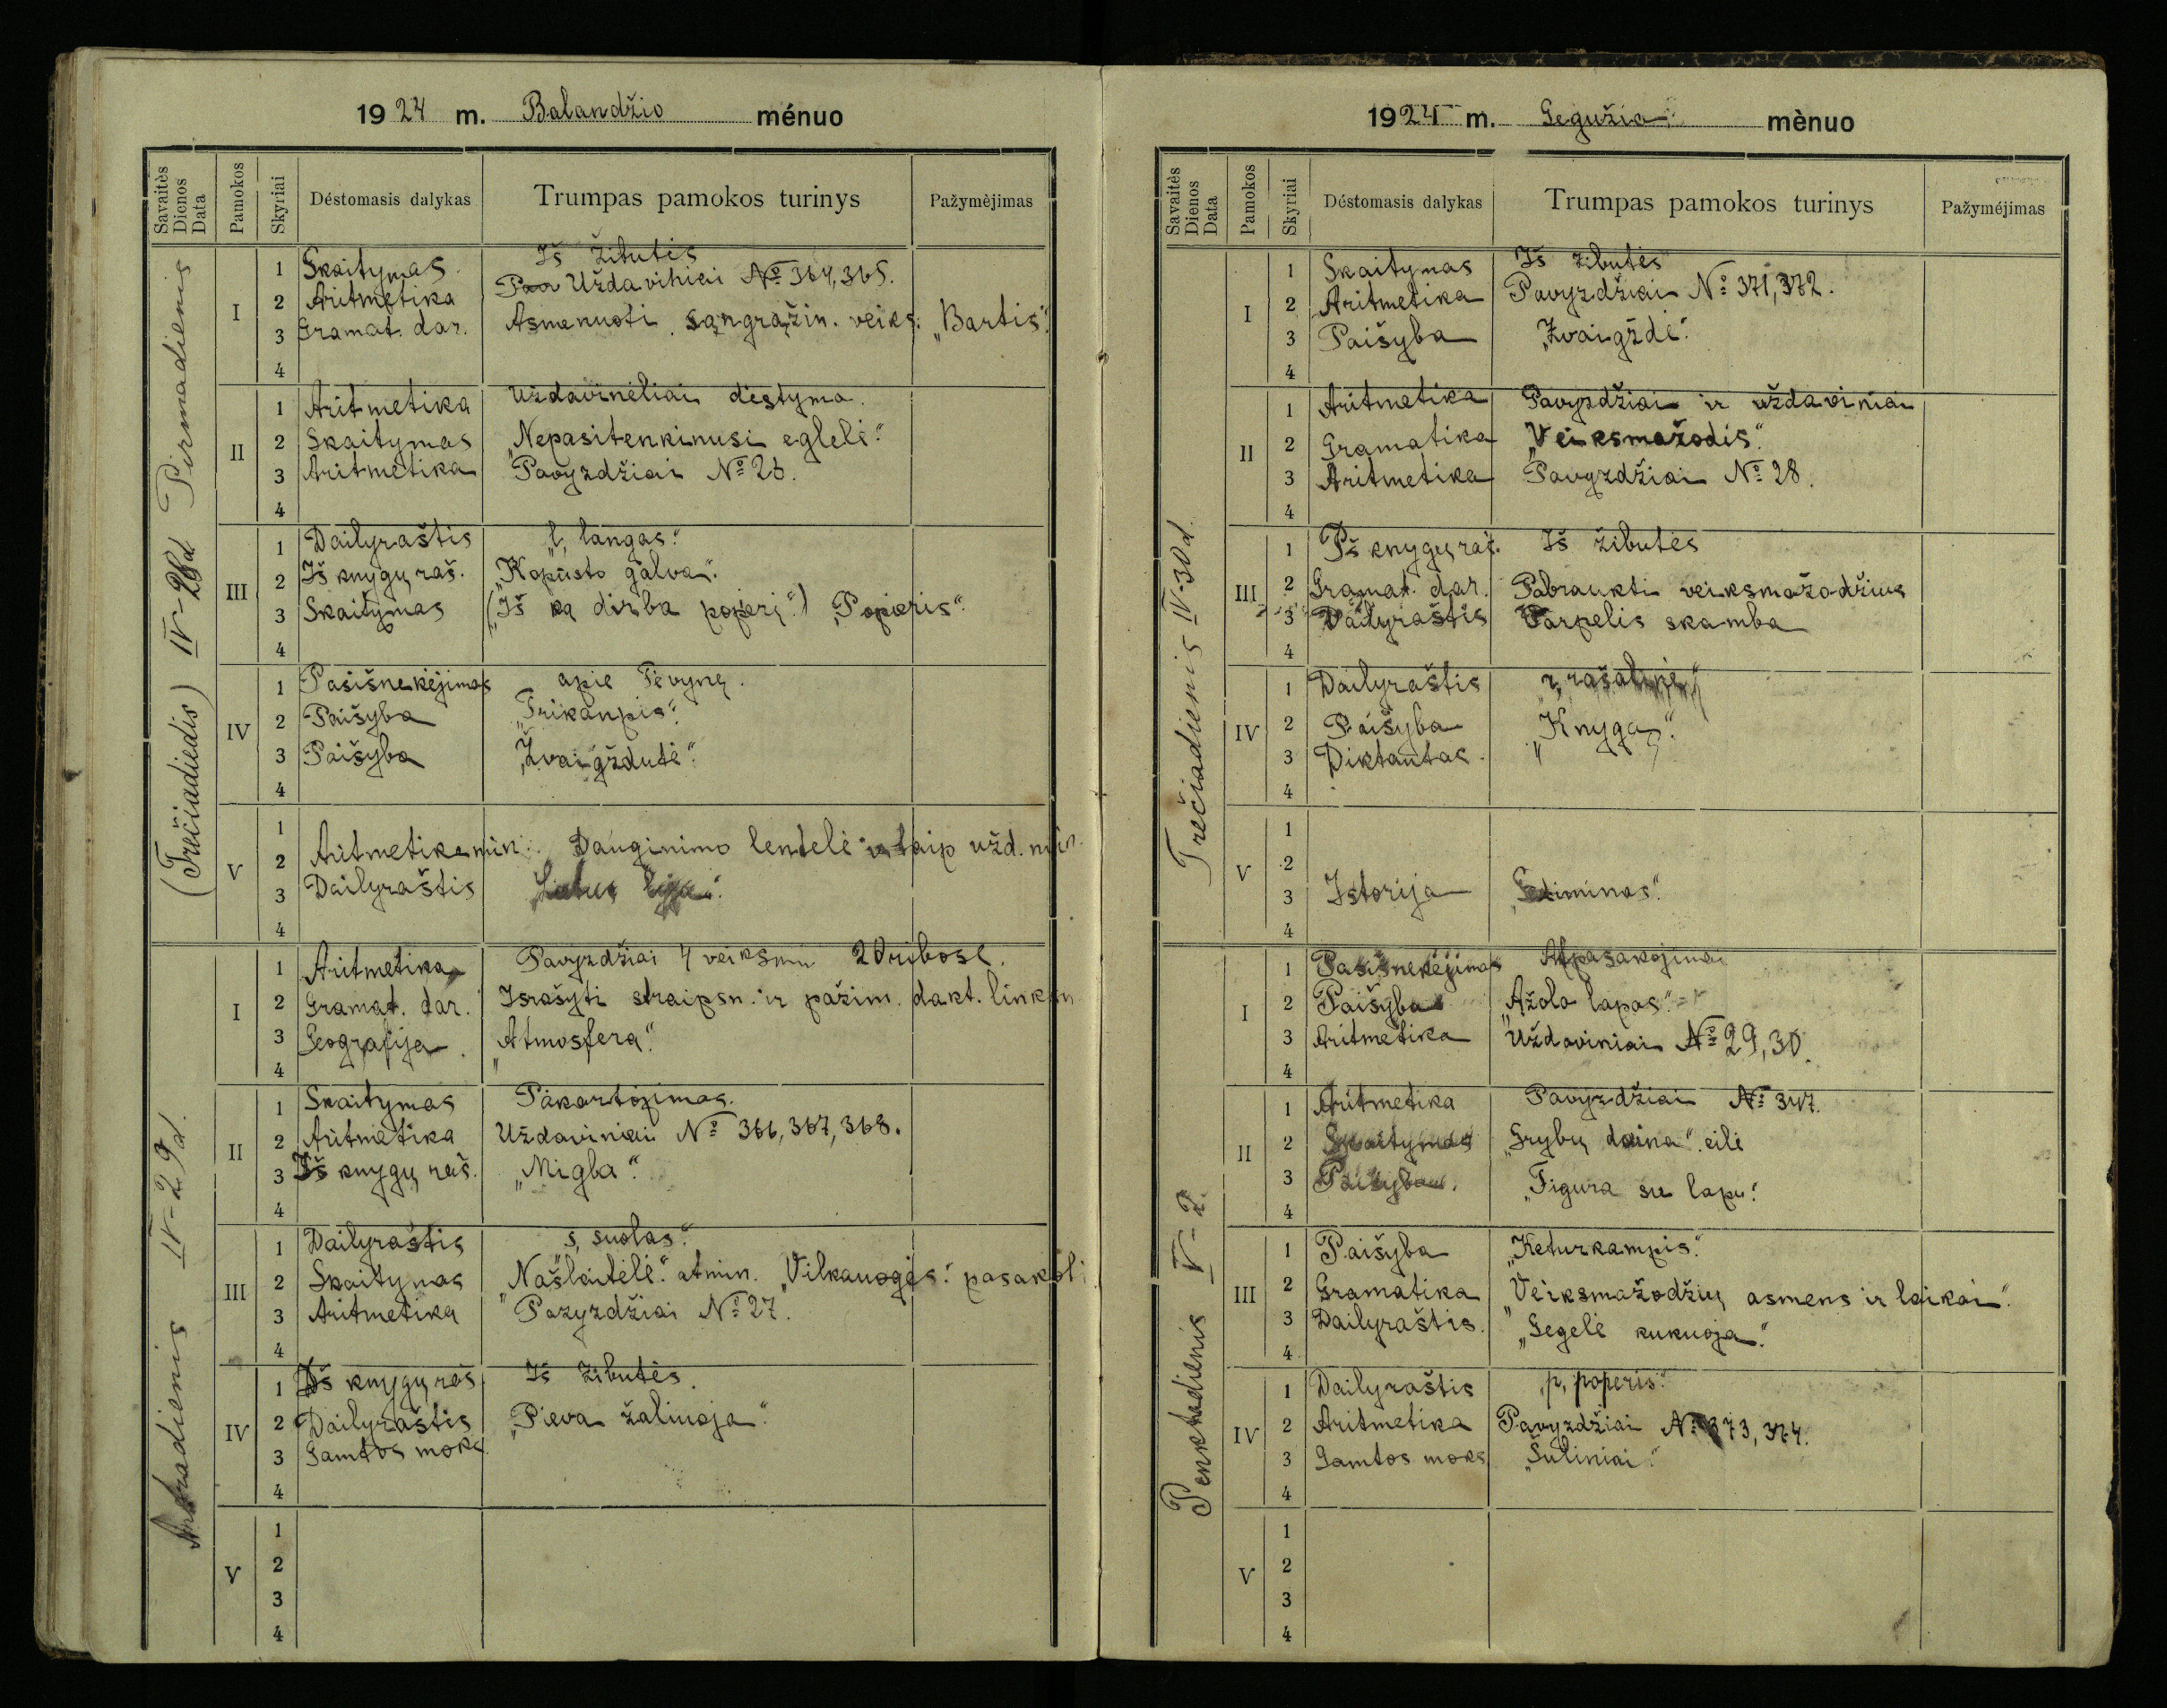 1924 m. Balandžio ménuo
Savaitės Dienos Data Pamokos Skyriai Déstomasis dalykas Trumpas pamokos turinys Pažymėjimas
Pirmadienis IV-28d (Trečiadiedis)
I
1 Skaitymas. Iš žibutės
2 Aritmetika Uždaviniai № 364, 365.
3 Gramat. dar. Asmenuoti sąngrąžin. veiks. „Bartis“.
4
II
1 Aritmetika Uždavinėliai dėstymo.
2 Skaitymas „Nepasitenkinusi eglelė“
3 Aritmetika Pavyzdžiai № 26.
4
III
1 Dailyraštis „l, langas“
2 Iš knygų raš. „Kopūsto galva“.
3 Skaitymas („Iš ką dirba popierį“) „Popieris“.
4
IV
1 Pasišnekėjimas apie Tėvynę.
2 Paišyba „Trikanpis“.
3 Paišyba „Žvaigždutė“.
4
V
1
2 Aritmetika min. Dauginimo lentelė ir taip užd. min.
3 Dailyraštis
4
Antradienis IV-29d.
I
1 Aritmetika Pavyzdžiai 4 veiksmu 20 ribose.
2 Gramat. dar. Israšyti straipsn. ir pažim. dakt. linksn
3 Geografija. „Atmosfera“.
4
II
1 Skaitymas Pakartojimas.
2 Aritmetika Uždaviniai № 366, 367, 368.
3 Iš knygų raš. „Migla“.
4
III
1 Dailyraštis „s, suolas“.
2 Skaitymas „Našlaitėlė“ atmin. „Vilkauogės“ pasakoti
3 Aritmetika Pazyzdžiai № 27.
4
IV
1 Iš knygų raš Iš žibutės.
2 Dailyraštis „Pieva žaliuoja“.
3 Gamtos moks.
4
V
1
2
3
4
1924 m. Gegužio mènuo
Savaitės Dienos Data Pamokos Skyriai Déstomasis dalykas Trumpas pamokos turinys Pažyméjimas
Trečiadienis IV-30d.
I
1 Skaitymas Iš žibutės
2 Aritmetika Pavyzdžiai № 371, 372.
3 Paišyba „Žvaigždė“.
4
II
1 Aritmetika Pavyzdžiai ir uždaviniai
2 Gramatika „Veiksmažodis“.
3 Aritmetika Pavyzdžiai № 28.
4
III
1 Iš knygų raš. Iš žibutės
2 Gramat. dar. Pabraukti veiksmažodžius
3 Dailyraštis Varpelis skamba
4
IV
1 Dailyraštis „r, rašalinė“
2 Paišyba „Knyga“.
3 Diktantas.
4
V
1
2
3 Istorija „Gediminas“.
4
Penktadienis V-2.
I
1 Pasišnekėjimas Atpasakojimai
2 Paišyba „Ažolo lapas“.
3 Aritmetika Uždaviniai № 29, 30.
4
II
1 Aritmetika Pavyzdžiai № 347.
2 Skaitymas „Grybų daina“ eilė
3 Paišyba. „Figura su lapu“.
4
III
1 Paišyba „Keturkampis“.
2 Gramatika „Veiksmažodžių asmens ir laikai“.
3 Dailyraštis. „Gegelė kukuoja“.
4
IV
1 Dailyraštis „p, poperis“.
2 Aritmetika Pavyzdžiai № 373, 374.
3 Gamtos moks „Šuliniai“.
4
V
1
2
3
4